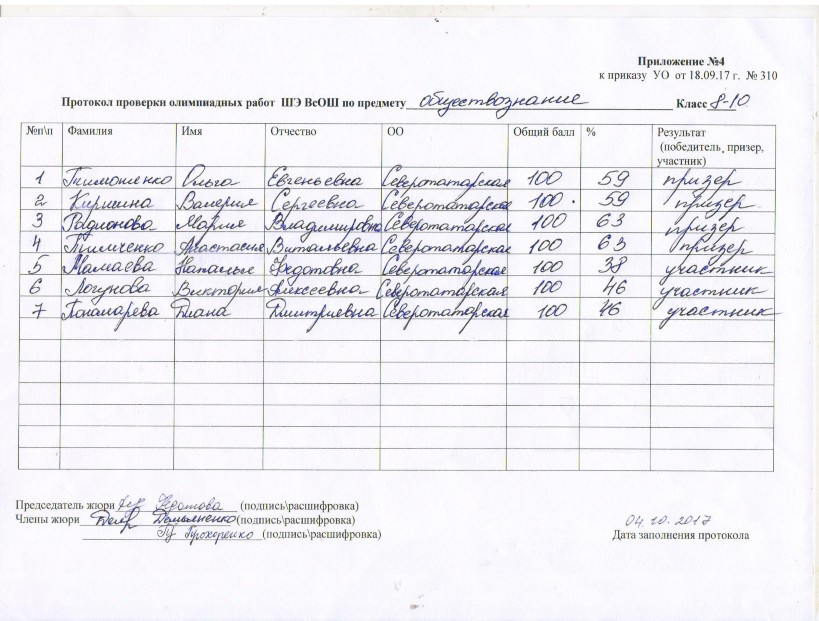 Приложение №4
к приказу УО от 18.09.17 г. № 310
Протокол проверки олимпиадных работ ШЭ ВсОШ по предмету обществознание Класс 8-10
№п\п Фамилия Имя Отчество ОО Общий балл % Результат (победитель, призер, участник)
1 Тимошенко Ольга Евгеньевна Северотатарская 100 59 призер
2 Киршина Валерия Сергеевна Северотатарская 100 59 призер
3 Радионова Мария Владимировна Северотатарская 100 63 призер
4 Тимченко Анастасия Витальевна Северотатарская 100 63 призер
5 Мамаева Наталья Федотовна Северотатарская 100 38 участник
6 Логунова Виктория Алексеевна Северотатарская 100 46 участник
7 Понамарева Диана Дмитриевна Северотатарская 100 46 участник
Председатель жюри Федотова (подпись\расшифровка)
Члены жюри Демьяненко (подпись\расшифровка)
Прохоренко (подпись\расшифровка)
04.10.2017
Дата заполнения протокола